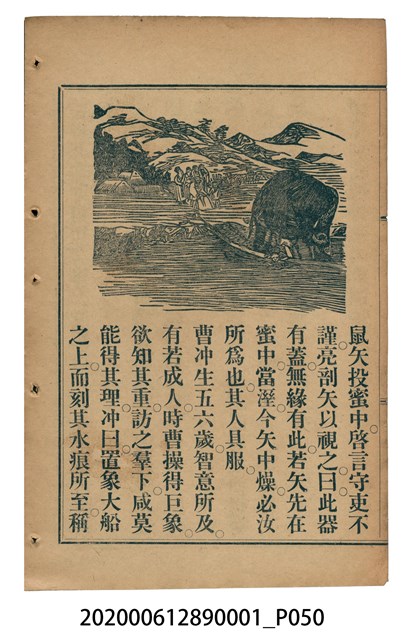 鼠矢投蜜中啓言守吏不
謹亮剖矢以視之曰此器
有蓋無緣有此若矢先在
蜜中當溼今矢中燥必汝
所爲也其人具服
曹冲生五六歲智意所及
有若成人時曹操得巨象
欲知其重訪之羣下咸莫
能得其理冲曰置象大船
之上而刻其水痕所至稱
202000612890001_P050